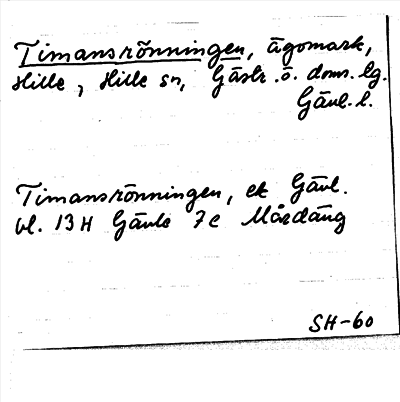 Timansrönningen, ägomark,
Hille, Hille sn, Gästr. ö. doms. lg.
Gävl. l.
Timansrönningen, ek Gävl.
bl. 13 H Gävle 7c Mårdäng
SH-60